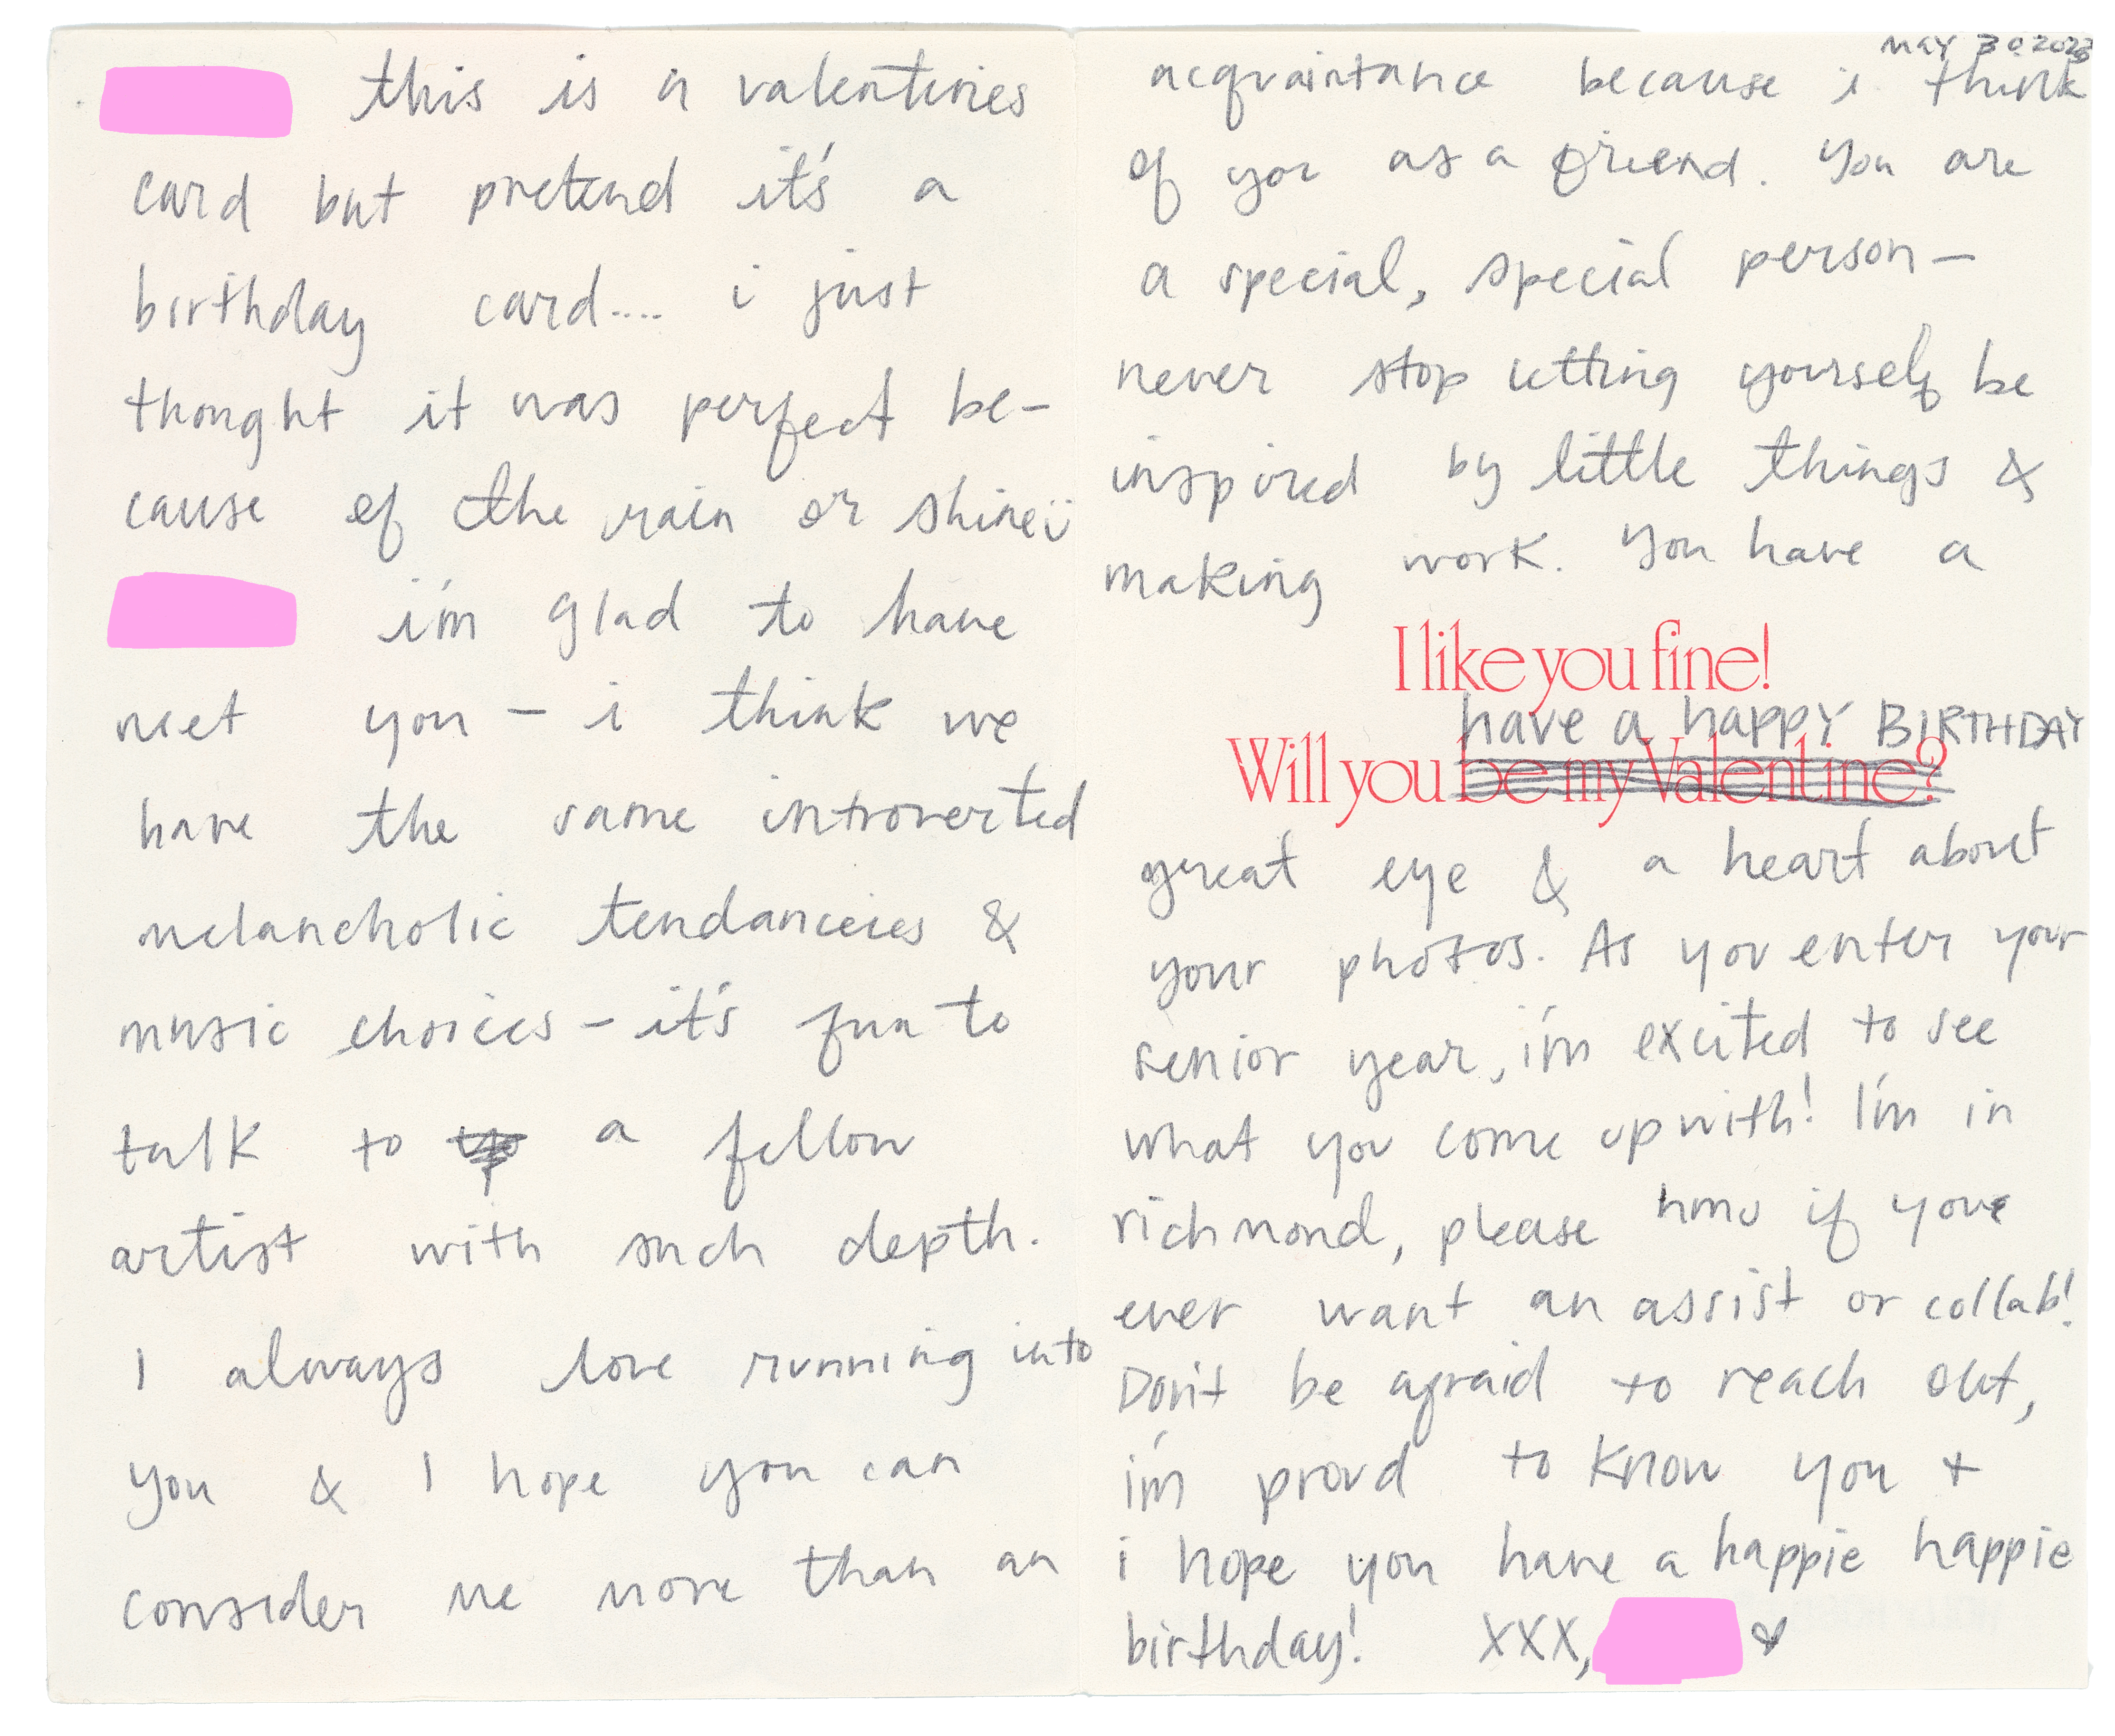 this is a valentines
card but pretend it's a
birthday card.... i just
thought it was perfect be-
cause of the rain or shine
i'm glad to have
met you – i think we
have the same introverted
melancholic tendanceies &
music choices – it's fun to
talk to a fellow
artist with such depth.
I always love running into
you & I hope you can
consider me more than an
MAY 30 2023
acquaintance because i think
of you as a friend. You are
a special, special person –
never stop letting yourself be
inspired by little things &
making work. You have a
I like you fine!
have a happy BIRTHDAY
Will you be my Valentine?
great eye & a heart about
your photos. As you enter your
senior year, i'm excited to see
what you come up with! I'm in
richmond, please hmu if you
ever want an assist or collab!
Don't be afraid to reach out,
i'm proud to know you +
i hope you have a happie happie
birthday! XXX,